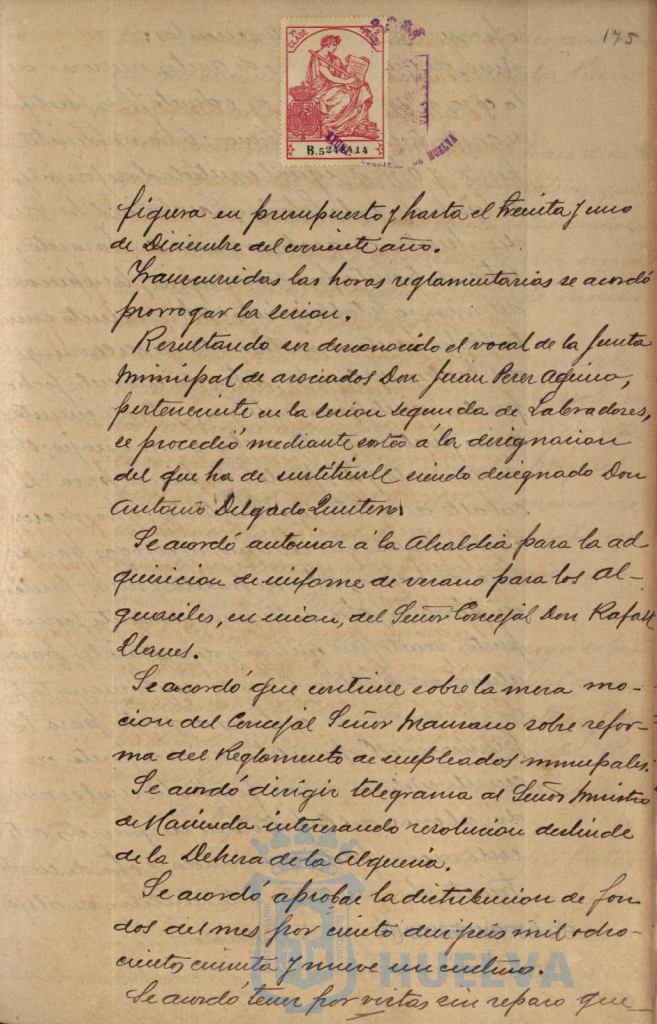 175
7ª CLASE
2 PESETAS
B.5244.414
HUELVA
figura en presupuesto y hasta el treinta y uno
de Diciembre del corriente año.
Transcurridas las horas reglamentarias se acordó
prorrogar la sesion.
Resultando ser desconocido el vocal de la Junta
Municipal de asociados Don Juan Perez Aquino,
perteneciente en la sesion segunda de Labradores,
se procedió mediante sorteo á la designacion
del que ha de sustituirle siendo designado Don
Antonio Delgado Quintero.
Se acordó autorizar á la Alcaldia para la ad
quisicion de uniforme de verano para los Al-
guaciles, en union, del Señor Concejal Don Rafael
Llanes.
Se acordó que continue sobre la mesa mo-
cion del Concejal Señor Manzano sobre refor-
ma del Reglamento de empleados municipales.
Se acordó dirigir telegrama al Señor Ministro
de Hacienda interesando resolucion deslinde
de la Dehesa de la Alqueria.
Se acordó aprobar la distribucion de fon
dos del mes por ciento diez y seis mil ocho-
cientos cincuenta y nueve un centimo.
Se acordó tener por vistas sin reparo que-
HUELVA